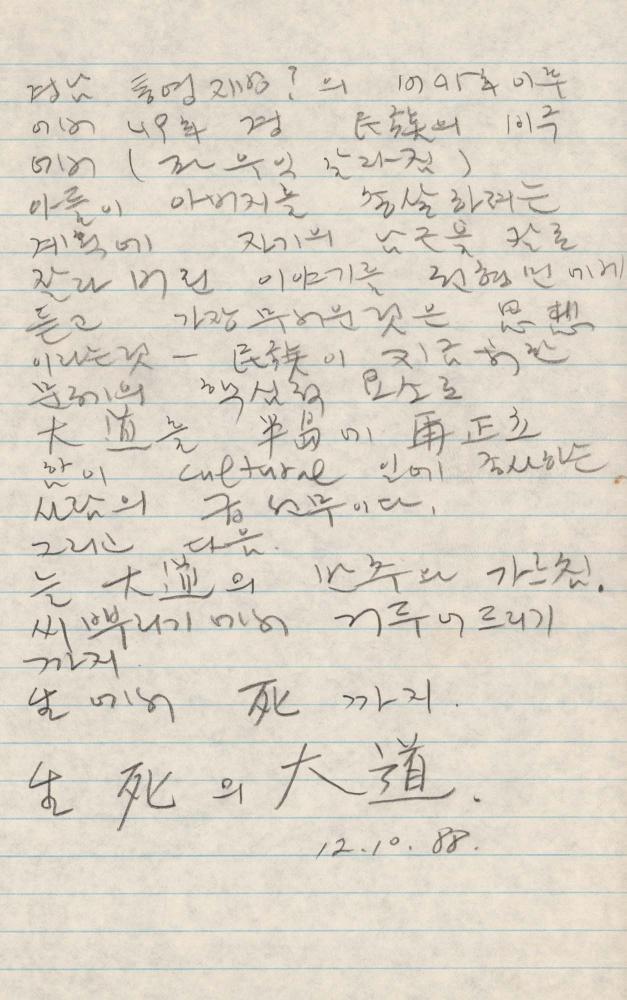 경남 통영 재방? 의 1945年 이후
에서 49年 경 民族의 비극
에서 (좌 우익 갈라짐)
아들이 아버지를 총살하려는
계획에 자기의 남근을 칼로
잘라 버린 이야기를
듣고 가장 무서운 것은 思想
이라는 것 — 民族이 지금 처한
문제의 핵심적 요소로
大道를 半島에 再正立
함이 Cultural 일에 종사하는
사람의 급선무이다.
그리고 다음.
늘 大道의 가르침.
씨뿌리기에서 거두어드리기
까지.
生에서 死까지.
生死의 大道.
12.10.88.